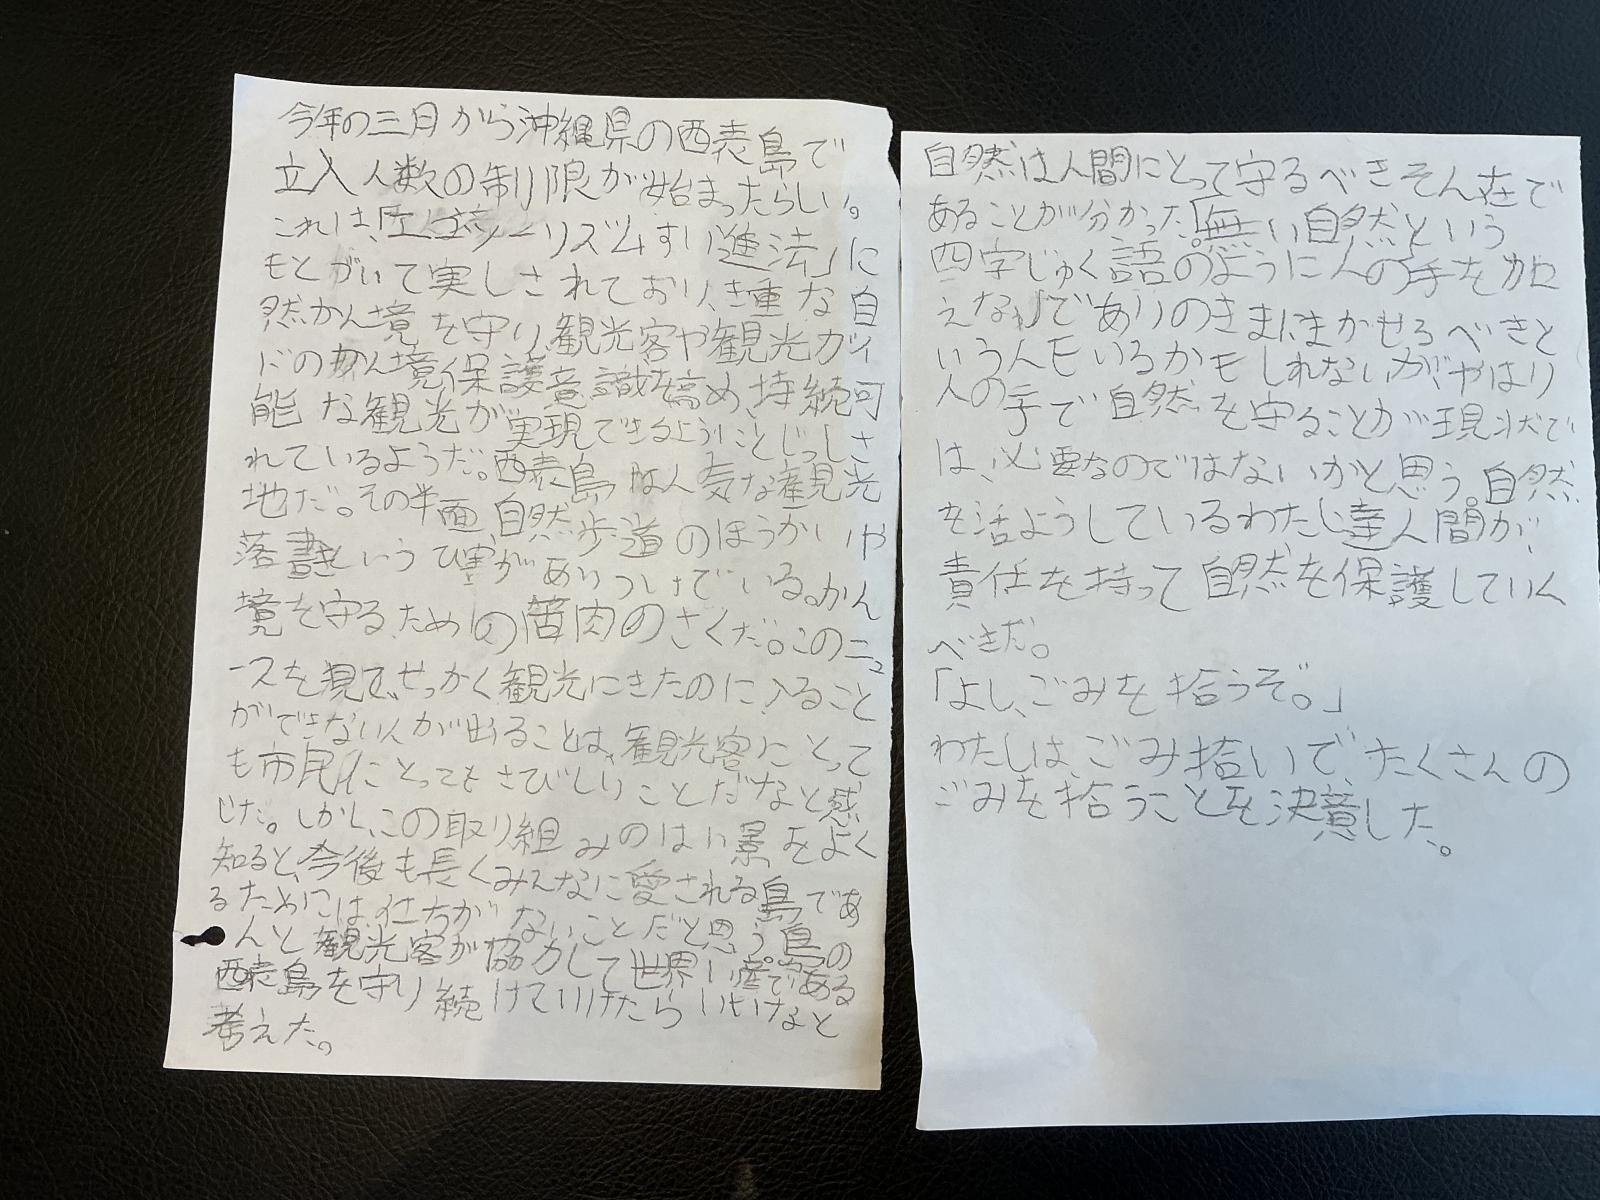 今年の三月から沖縄県の西表島で
立入人数の制限が始まったらしい。
これは、「エコツーリズムすい進法」に
もとがいて実しされており、き重な自
然かん境を守り、観光客や観光ガイ
ドのかん境保護意識を高め、持続可
能な観光が実現できるようにとじっしさ
れているようだ。西表島は人気な観光
地だ。その半面、自然歩道のほうかいや
落書きいうひ害があいついでいる。かん
境を守るための苦肉のさくだ。このニュ
ースを見て、せっかく観光にきたのに入ること
ができない人が出ることは、観光客にとって
も市民にとってもさびしいことだなと感
じた。しかし、この取り組みのはい景をよく
知ると、今後も長くみんなに愛される島であ
るためには、仕方がないことだと思う。島の
人と観光客が協力して世界い産である
西表島を守り続けていけたらいいなと
考えた。
自然は人間にとって守るべきそん在で
あることが分かった。「無い自然という
四字じゅく語のように人の手を加
えないでありのままにまかせるべきと
いう人もいるかもしれないが、やはり
人の手で自然を守ることが現状で
は、必要なのではないかと思う。自然
を活ようしているわたし達人間が、
責任を持って自然を保護していく
べきだ。
「よし、ごみを拾うぞ。」
わたしは、ごみ拾いで、たくさんの
ごみを拾うことを決意した。